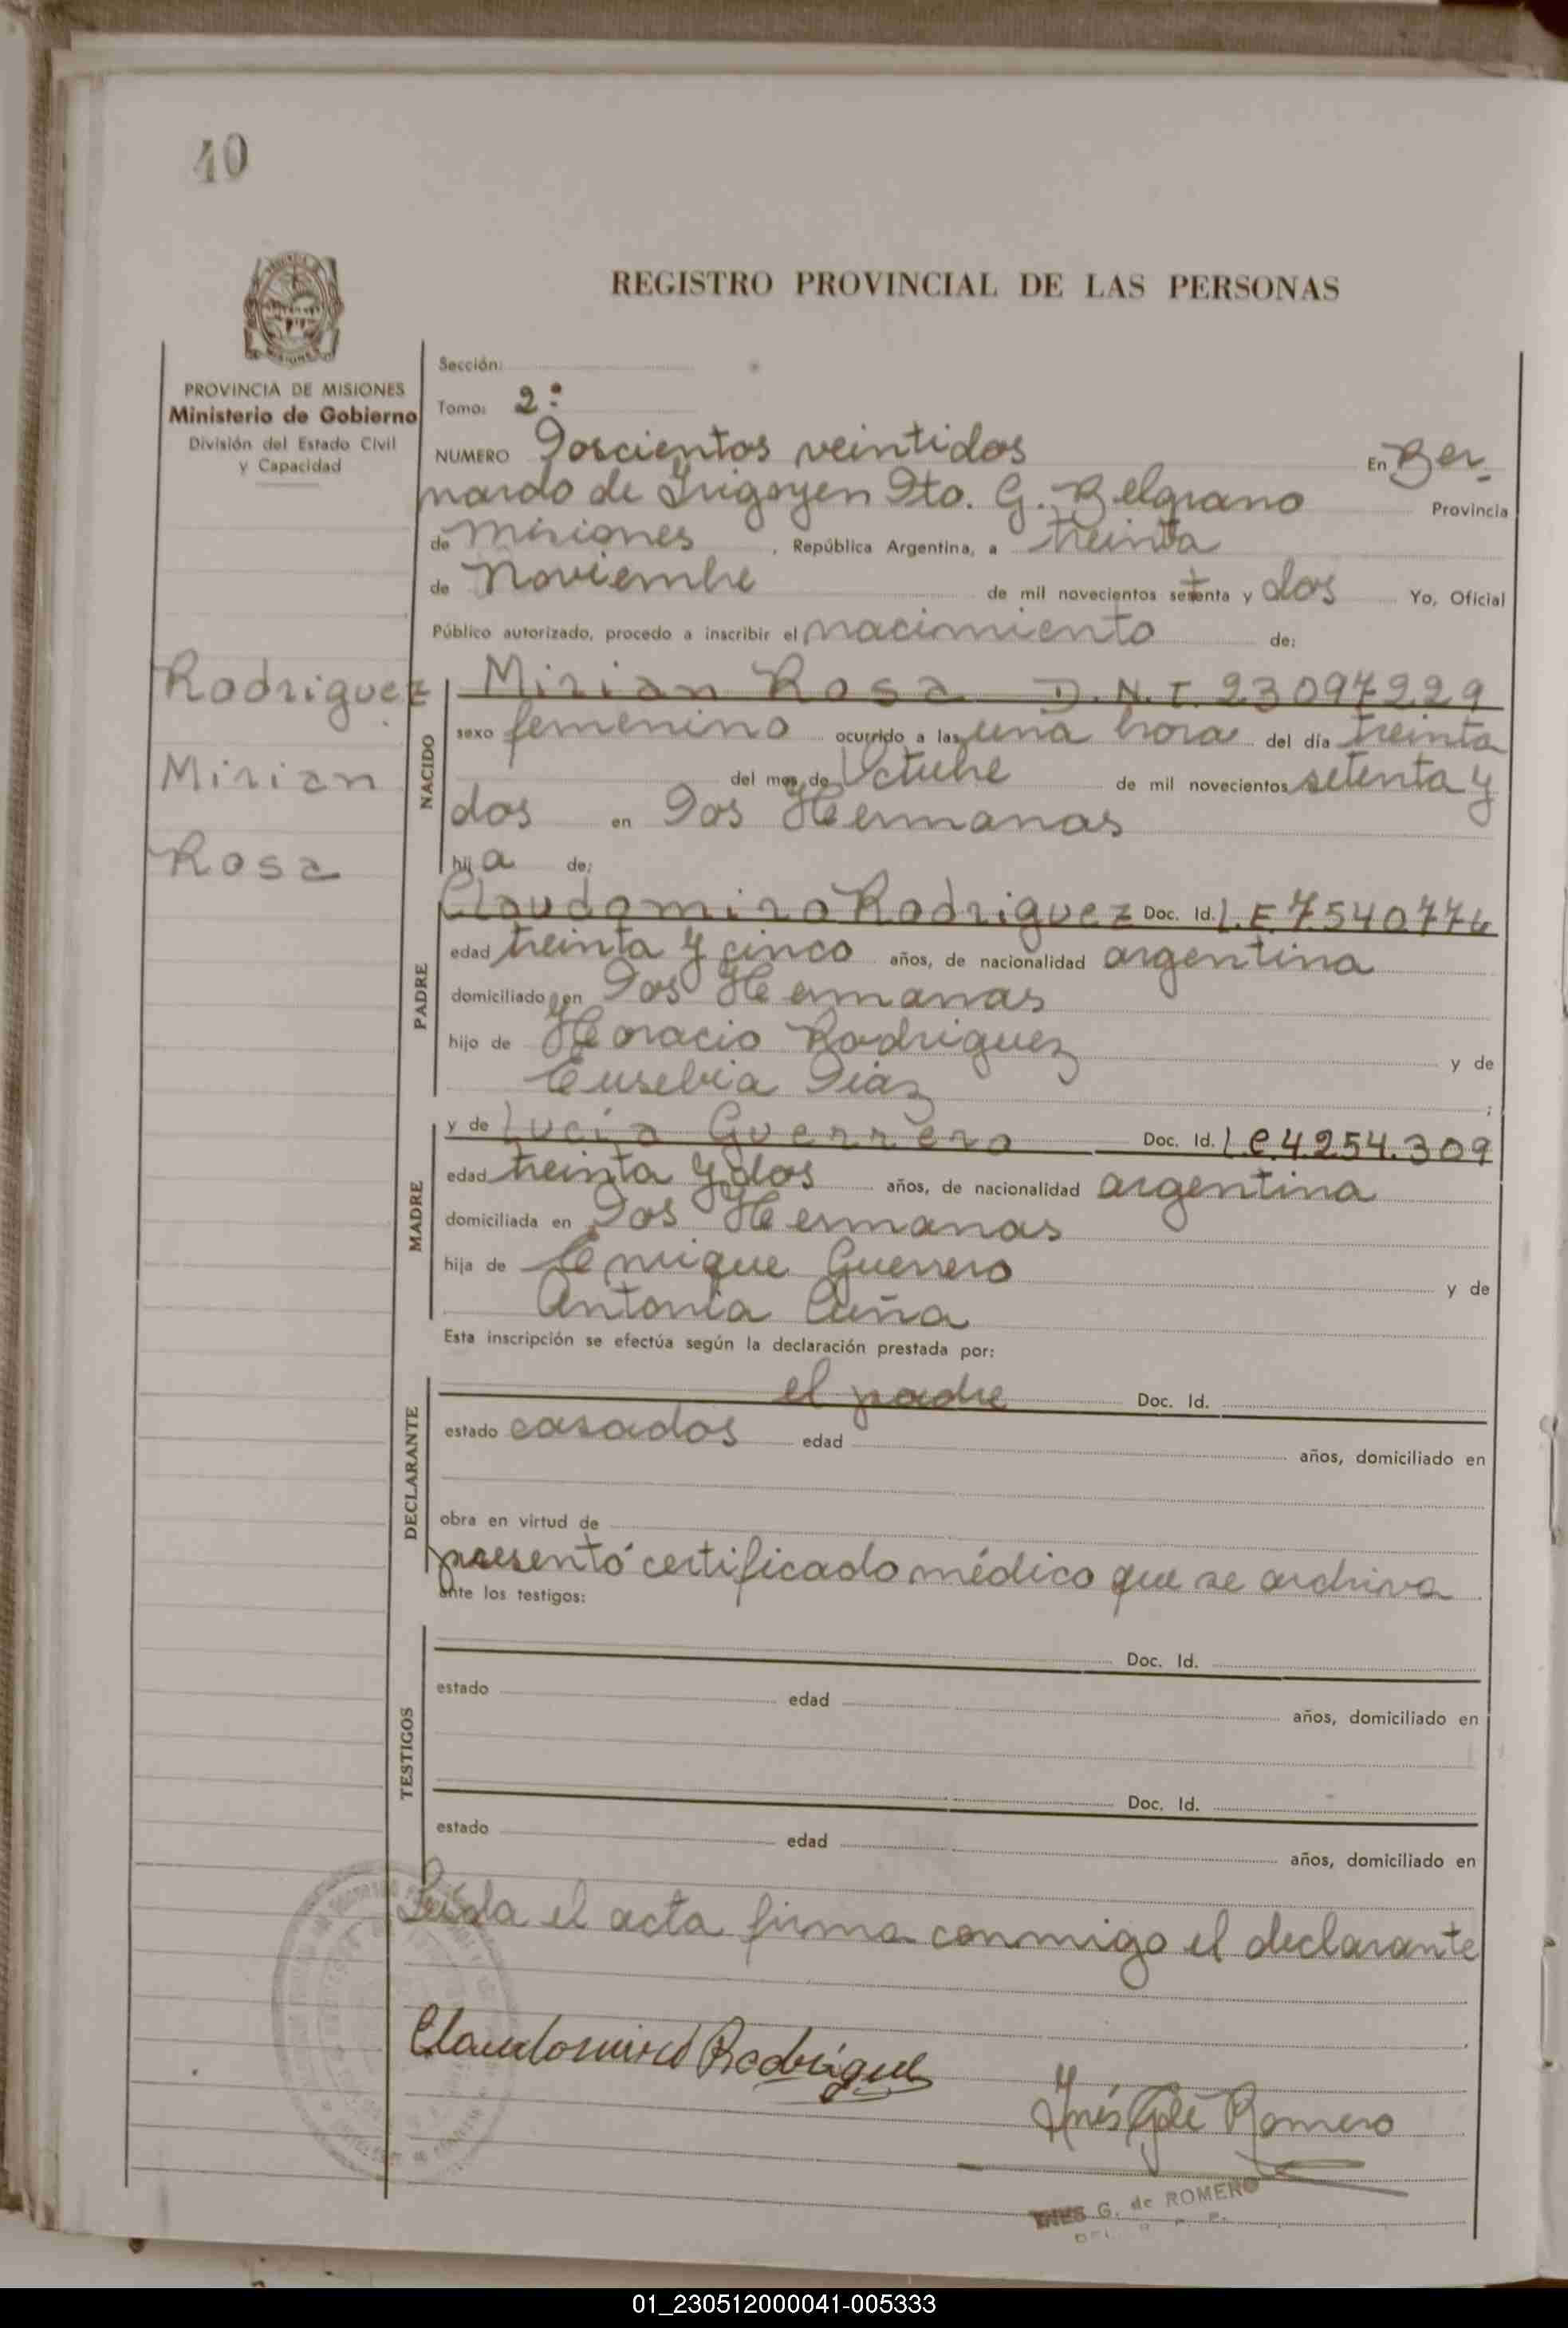 40
REGISTRO PROVINCIAL DE LAS PERSONAS
PROVINCIA DE MISIONES
Ministerio de Gobierno
División del Estado Civil
y Capacidad
Sección:
Tomo: 2º
NUMERO Doscientos veintidos En Ber-
nardo de Irigoyen Dto. G. Belgrano Provincia
de Misiones, República Argentina, a treinta
de Noviembre de mil novecientos setenta y dos Yo, Oficial
Público autorizado, procedo a inscribir el nacimiento de:
Rodriguez
Mirian
Rosa
NACIDO
Mirian Rosa D.N.I. 23097229
sexo femenino ocurrido a las una hora del día treinta
del mes de Octubre de mil novecientos setenta y
dos en Dos Hermanas
hija de:
PADRE
Claudomiro Rodriguez Doc. Id. L.E 7.540776
edad treinta y cinco años, de nacionalidad argentina
domiciliado en Dos Hermanas
hijo de Horacio Rodriguez y de
Eusebia Diaz ;
MADRE
y de Lucía Guerrero Doc. Id. L C.4.254.309
edad treinta y dos años, de nacionalidad argentina
domiciliada en Dos Hermanas
hija de Enrique Guerrero y de
Antonia Cuña
Esta inscripción se efectúa según la declaración prestada por:
DECLARANTE
el padre Doc. Id.
estado casados edad años, domiciliado en
obra en virtud de
presentó certificado médico que se archiva
ante los testigos:
TESTIGOS
Doc. Id.
estado edad años, domiciliado en
Doc. Id.
estado edad años, domiciliado en
Leída el acta firma conmigo el declarante
Claudomiro Rodriguez
Inés G. de Romero
INES G. de ROMERO
01_230512000041-005333